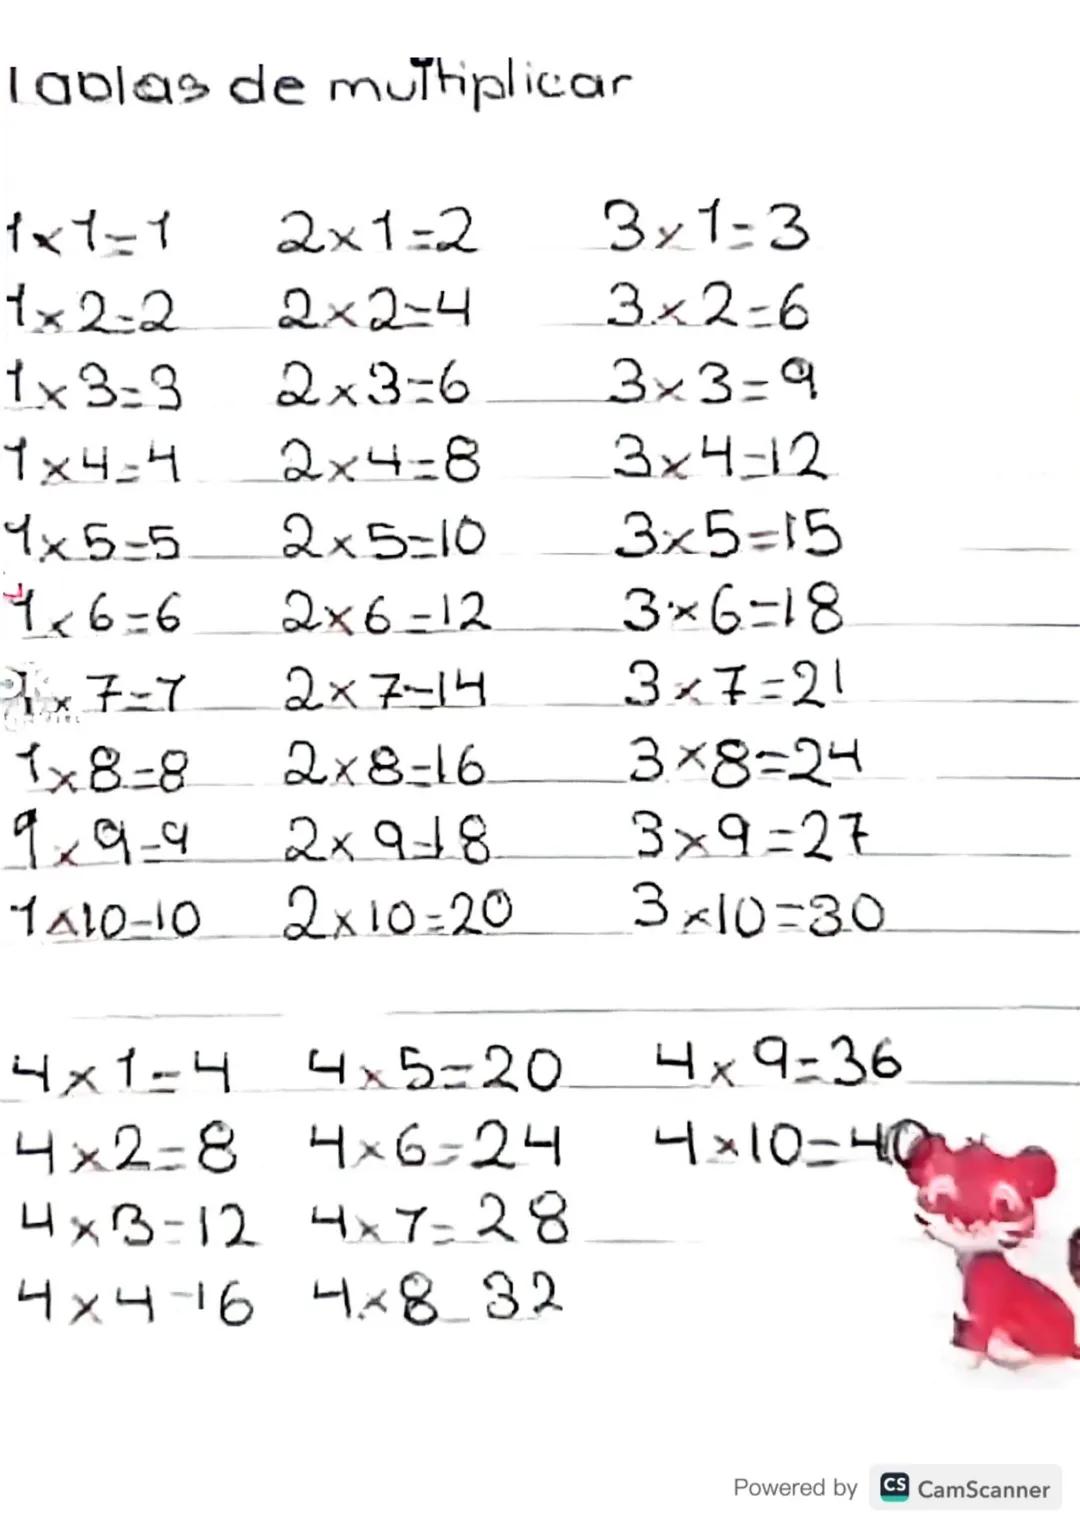 Tablas de multiplicar
1x1=1 2x1=2 3x1=3
1x2=2 2x2=4 3x2=6
1x3=3 2x3=6 3x3=9
1x4=4 2x4=8 3x4=12
1x5=5 2x5=10 3x5=15
1x6=6 2x6=12 3x6=18
1x7=7 2x7=14 3x7=21
1x8=8 2x8=16 3x8=24
1x9=9 2x9=18 3x9=27
1x10=10 2x10=20 3x10=30
4x1=4 4x5=20 4x9=36
4x2=8 4x6=24 4x10=40
4x3=12 4x7=28
4x4=16 4x8=32
Powered by CS CamScanner